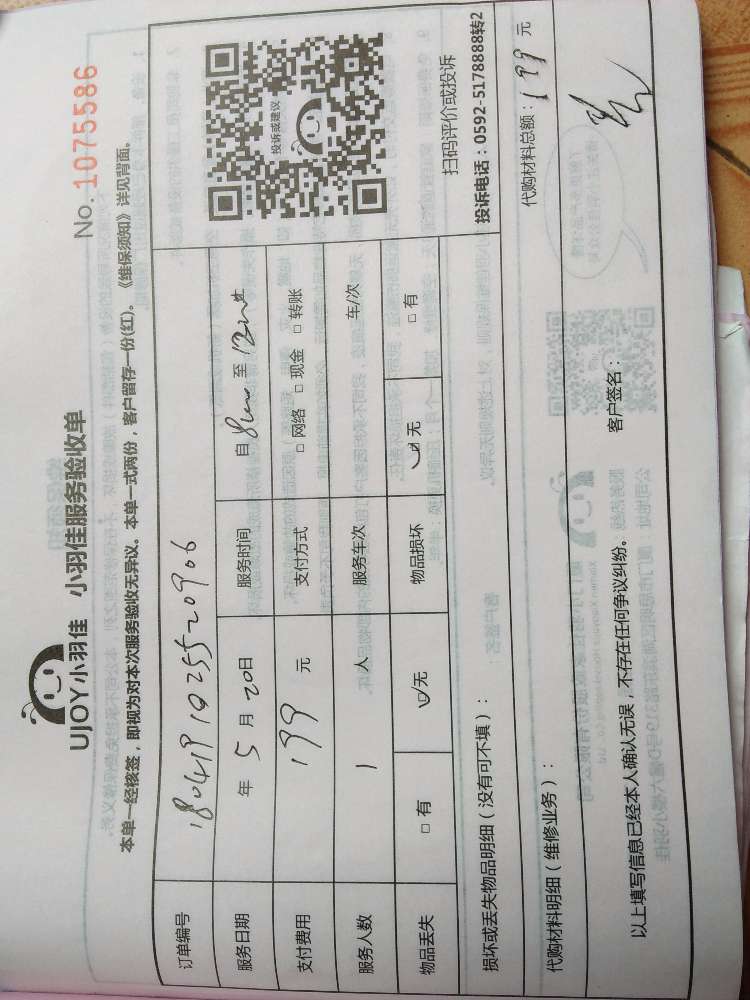 UJOY小羽佳 小羽佳服务验收单
No. 1075586
本单一经核签，即视为对本次服务验收无异议。本单一式两份，客户留存一份(红)。《维保须知》详见背面。
订单编号 18041910255520906
服务日期 年 5 月 20日 服务时间 自 8 至 12
支付费用 199 元 支付方式 □ 网络 □ 现金 □ 转账
服务人数 1 人 服务车次 车/次
物品丢失 □ 有 ☑ 无 物品损坏 ☑ 无 □ 有
投诉或建议
扫码评价或投诉
投诉电话：0592-5178888转2
损坏或丢失物品明细（没有可不填）：
代购材料明细（维修业务）： 代购材料总额：199 元
以上填写信息已经本人确认无误，不存在任何争议纠纷。 客户签名：